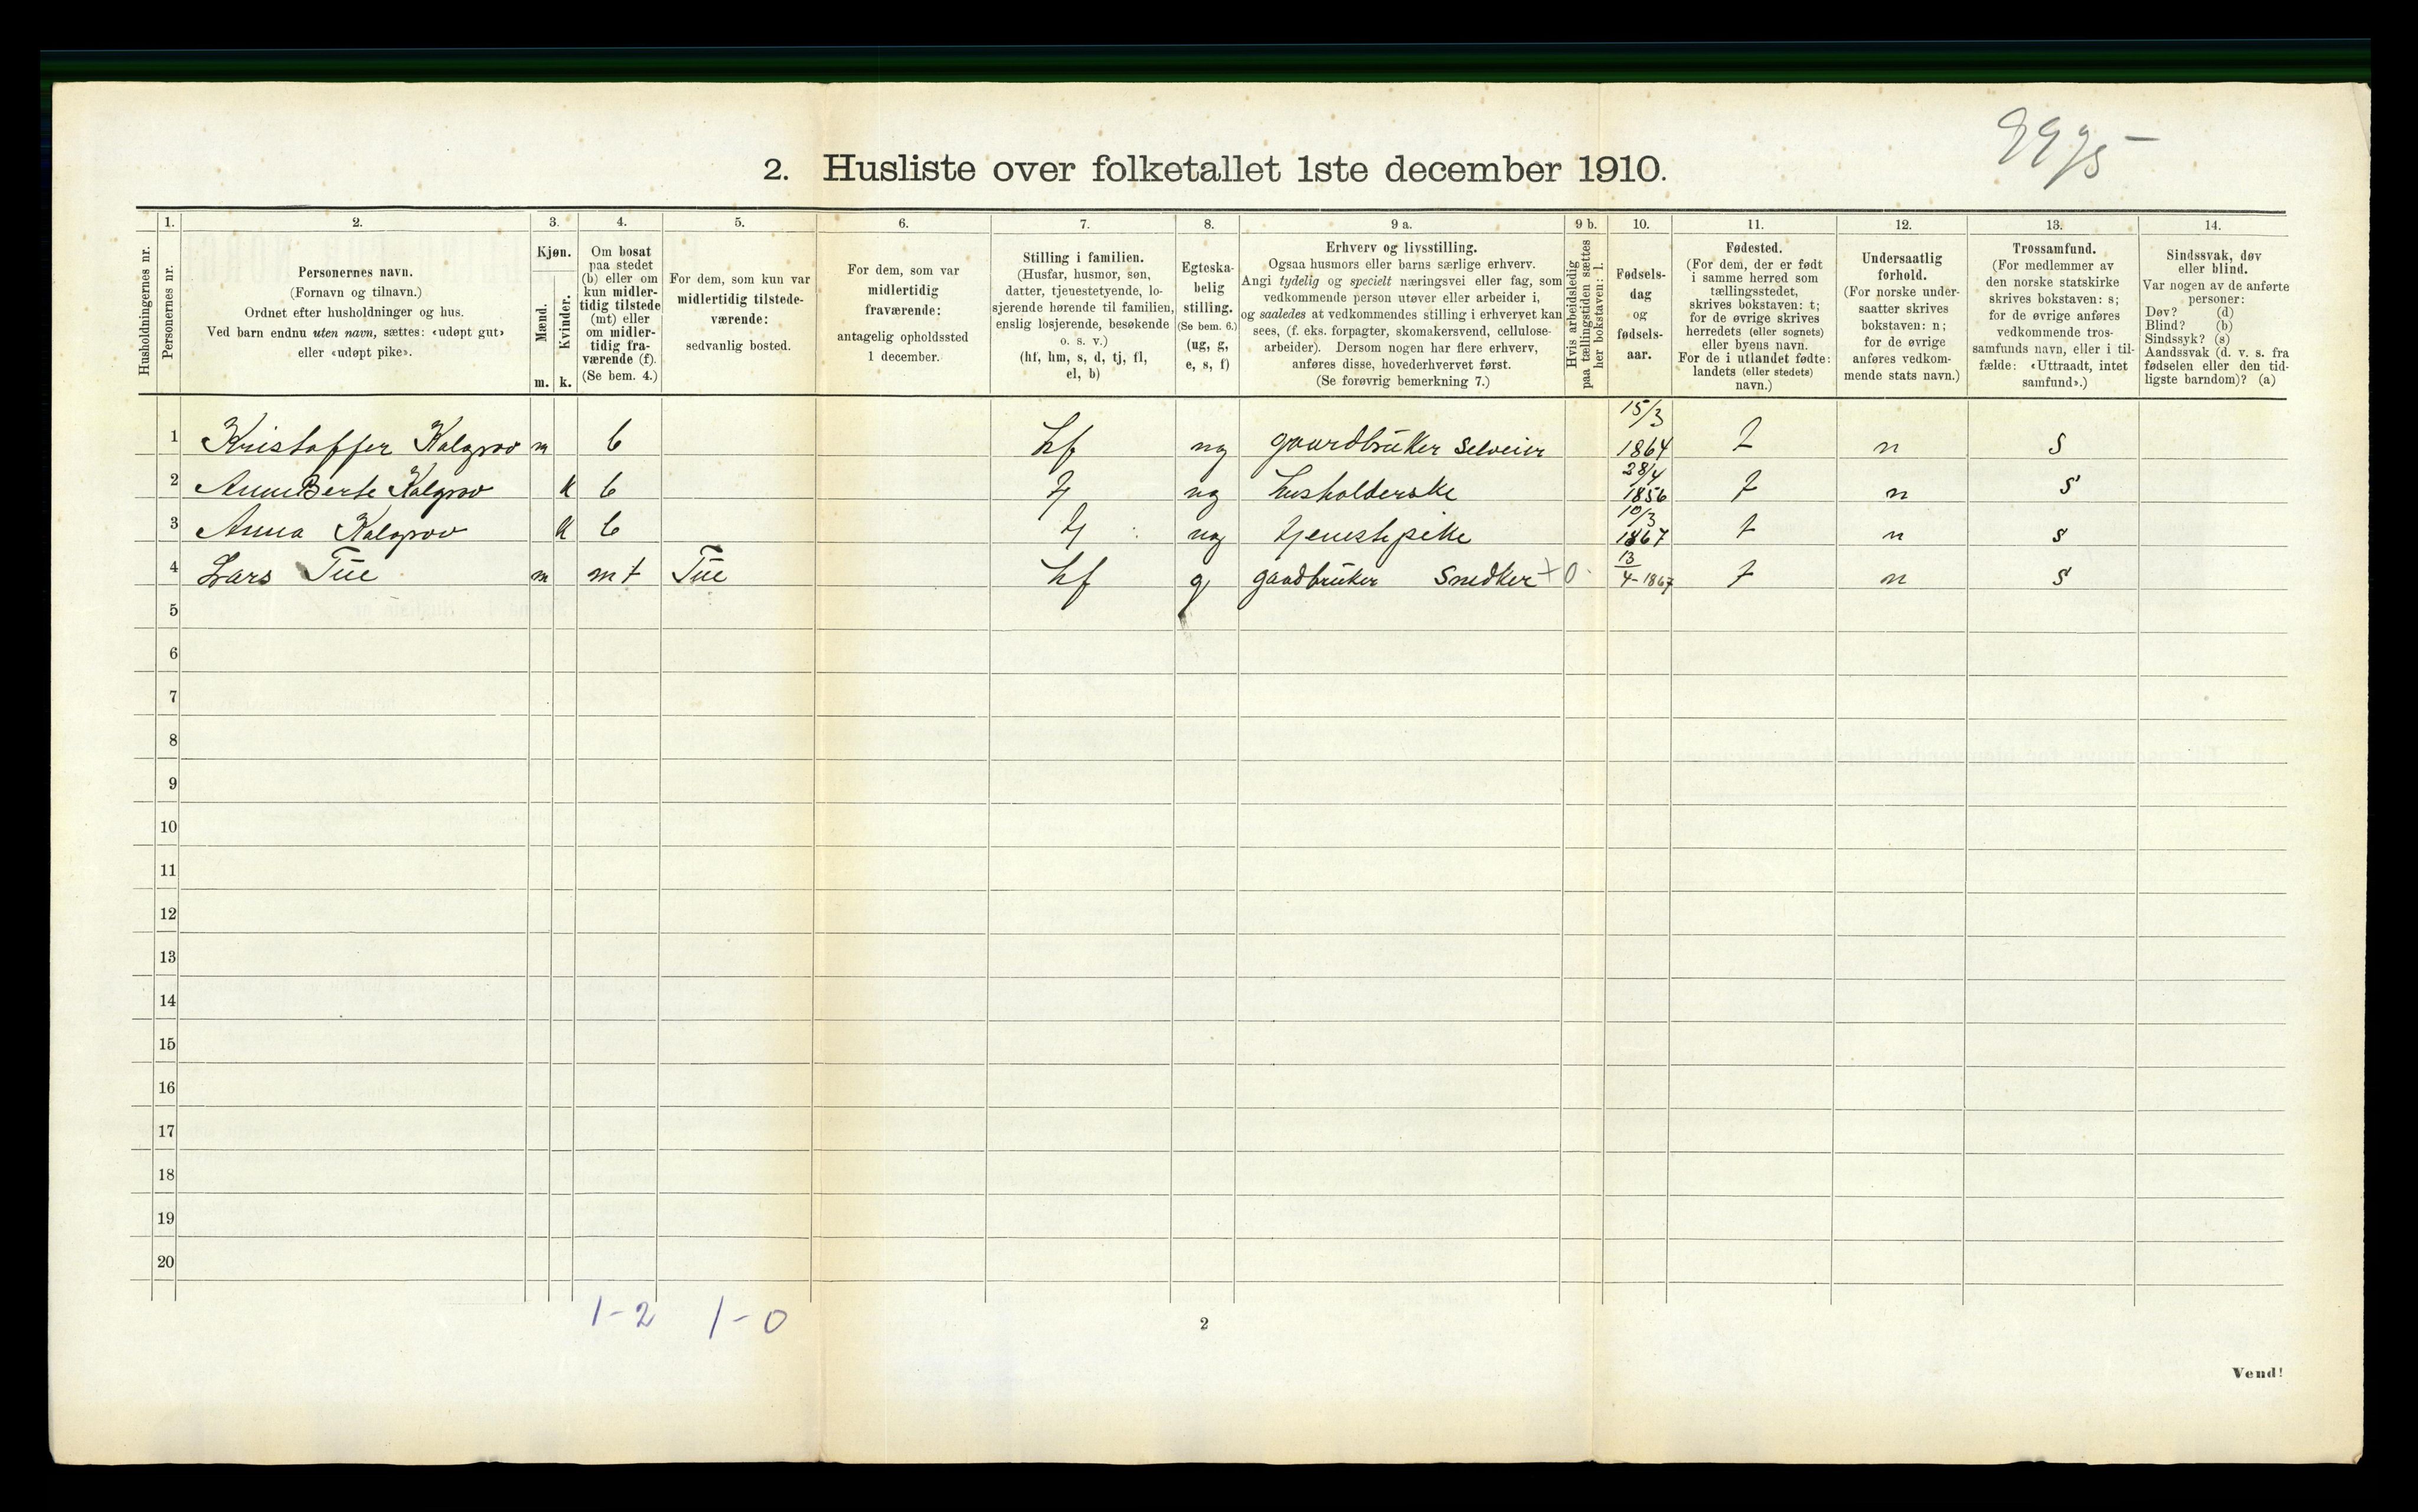 2. Husliste over folketallet 1ste december 1910.
Husholdningernes nr.
1.
Personernes nr.
2.
Personernes navn.
(Fornavn og tilnavn.)
Ordnet efter husholdninger og hus.
Ved barn endnu uten navn, sættes: «udøpt gut»
eller «udøpt pike».
3.
Kjøn.
Mænd.
Kvinder.
m. k.
4.
Om bosat
paa stedet
(b) eller om
kun midler-
tidig tilstede
(mt) eller
om midler-
tidig fra-
værende (f).
(Se bem. 4.)
5.
For dem, som kun var
midlertidig tilstede-
værende:
sedvanlig bosted.
6.
For dem, som var
midlertidig
fraværende:
antagelig opholdssted
1 december.
7.
Stilling i familien.
(Husfar, husmor, søn,
datter, tjenestetyende, lo-
sjerende hørende til familien,
enslig losjerende, besøkende
o. s. v.)
(hf, hm, s, d, tj, fl,
el, b)
8.
Egteska-
belig
stilling.
(Se bem. 6.)
(ug, g,
e, s, f)
9 a.
Erhverv og livsstilling.
Ogsaa husmors eller barns særlige erhverv.
Angi tydelig og specielt næringsvei eller fag, som
vedkommende person utøver eller arbeider i,
og saaledes at vedkommendes stilling i erhvervet kan
sees, (f. eks. forpagter, skomakersvend, cellulose-
arbeider). Dersom nogen har flere erhverv,
anføres disse, hovederhvervet først.
(Se forøvrig bemerkning 7.)
9 b.
Hvis arbeidsledig
paa tællingstiden sættes
her bokstaven: l.
10.
Fødsels-
dag
og
fødsels-
aar.
11.
Fødested.
(For dem, der er født
i samme herred som
tællingsstedet,
skrives bokstaven: t;
for de øvrige skrives
herredets (eller sognets)
eller byens navn.
For de i utlandet fødte:
landets (eller stedets)
navn.)
12.
Undersaatlig
forhold.
(For norske under-
saatter skrives
bokstaven: n;
for de øvrige
anføres vedkom-
mende stats navn.)
13.
Trossamfund.
(For medlemmer av
den norske statskirke
skrives bokstaven: s;
for de øvrige anføres
vedkommende tros-
samfunds navn, eller i til-
fælde: «Uttraadt, intet
samfund».)
14.
Sindssvak, døv
eller blind.
Var nogen av de anførte
personer:
Døv? (d)
Blind? (b)
Sindssyk? (s)
Aandssvak (d. v. s. fra
fødselen eller den tid-
ligste barndom)? (a)
1 Kristoffer Kalgrov m b hf ug gaardbruker Selveier 15/3 1864 t n s
2 Anne Berte Kalgrov k b tj ug husholderske 28/4 1856 t n s
3 Anna Kalgrov k b tj ug tjenestepike 10/3 1867 t n s
4 Lars Tue m mt Tue hf g gaadbruker Snedker + 0 13/4-1867 t n s
5
6
7
8
9
10
11
12
13
14
15
16
17
18
19
20
1-2 1-0
2
Vend!